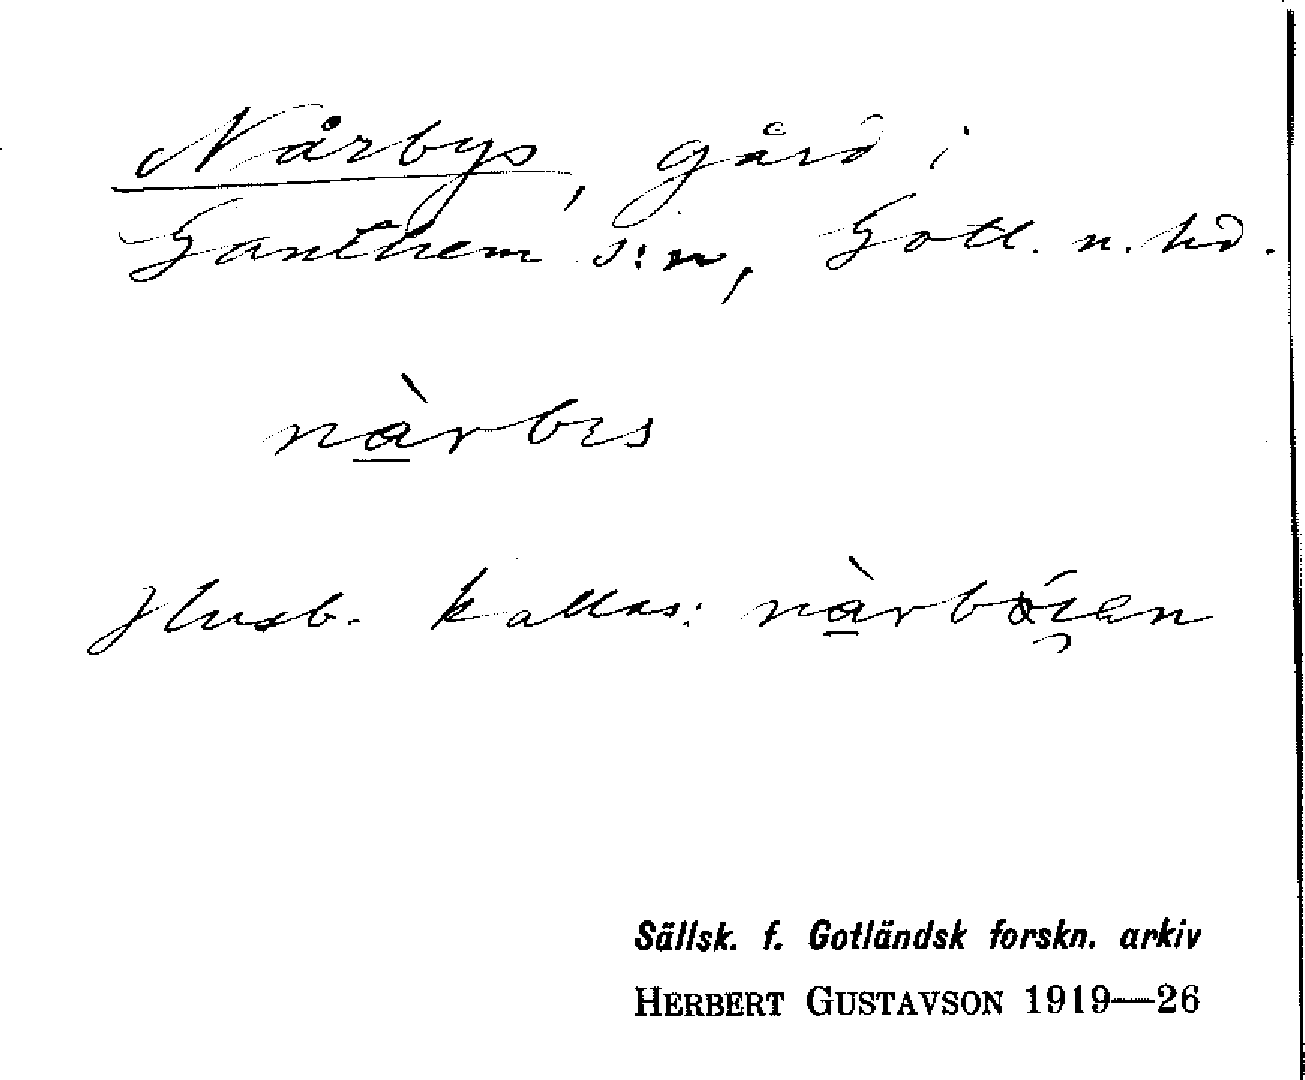 Nårbys, gård i
Ganthem s:n, Gotl. n. hd.
nàrbıs
Husb. kallas:
Sällsk. f. Gotländsk forskn. arkiv
HERBERT GUSTAVSON 1919—26